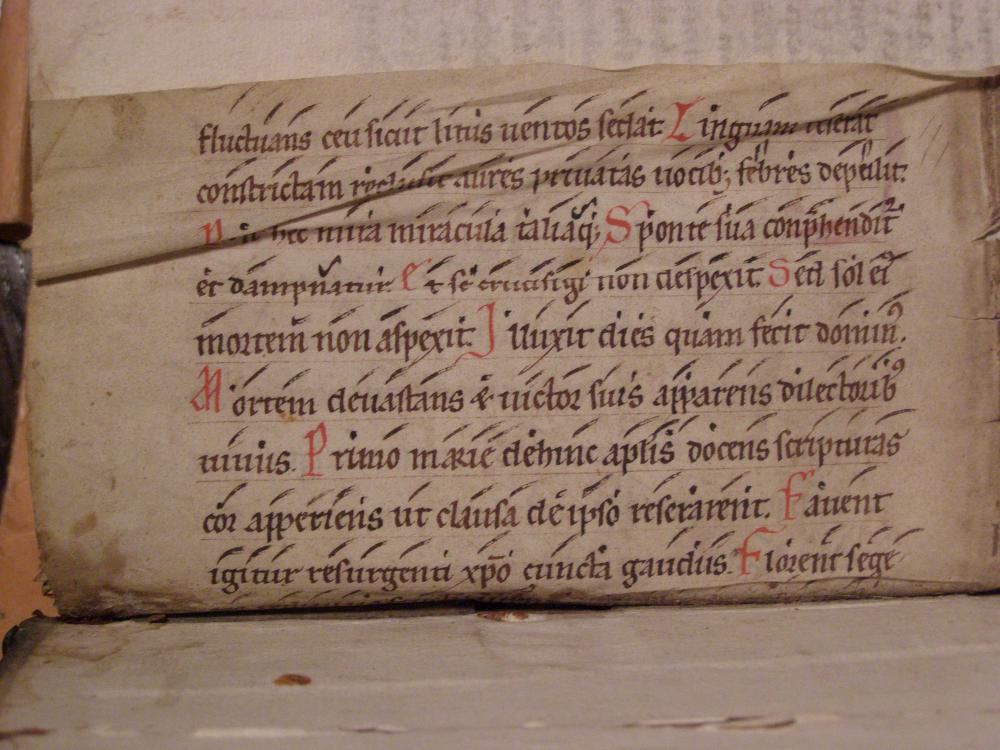 fluctuans ceu sicut litus uentos sedat Linguam userat
constrictam reclusit aures priuatas uocib; febres depulit.
hec mira miracula taliaq; Sponte sua conp̄hendit
et dampnatur et se crucifigi non despexit. Sed sol ei
mortem non aspexit. Jlluxit dies quam fecit domin⁹.
Mortem deuastans & uictor suis apparens dilectorib⁹
uiuus. Primo marie dehinc ap̄lis docens scripturas
cor apperiens ut clausa de ipso reserarent. Fauent
igitur resurgenti xp̄o cuncta gaudiis. Florent sege